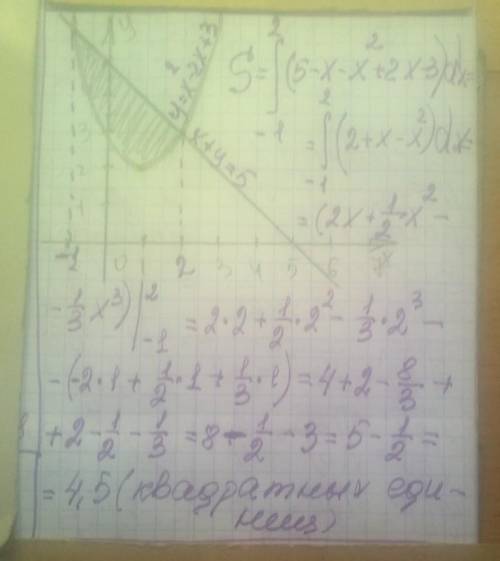 y
y=x²-2x+3
x+y=5
-1 0 2 3 4 5 6 x
S=∫₋₁²(5-x-x²+2x-3)dx=
=∫₋₁²(2+x-x²)dx=
=(2x+1/2x²-
-1/3x³)|₋₁²=2·2+1/2·2²-1/3·2³-
-(-2·1+1/2·1+1/3·1)=4+2-8/3+
+2-1/2-1/3=8-1/2-3=5-1/2=
=4,5(квадратных еди-
ниц)